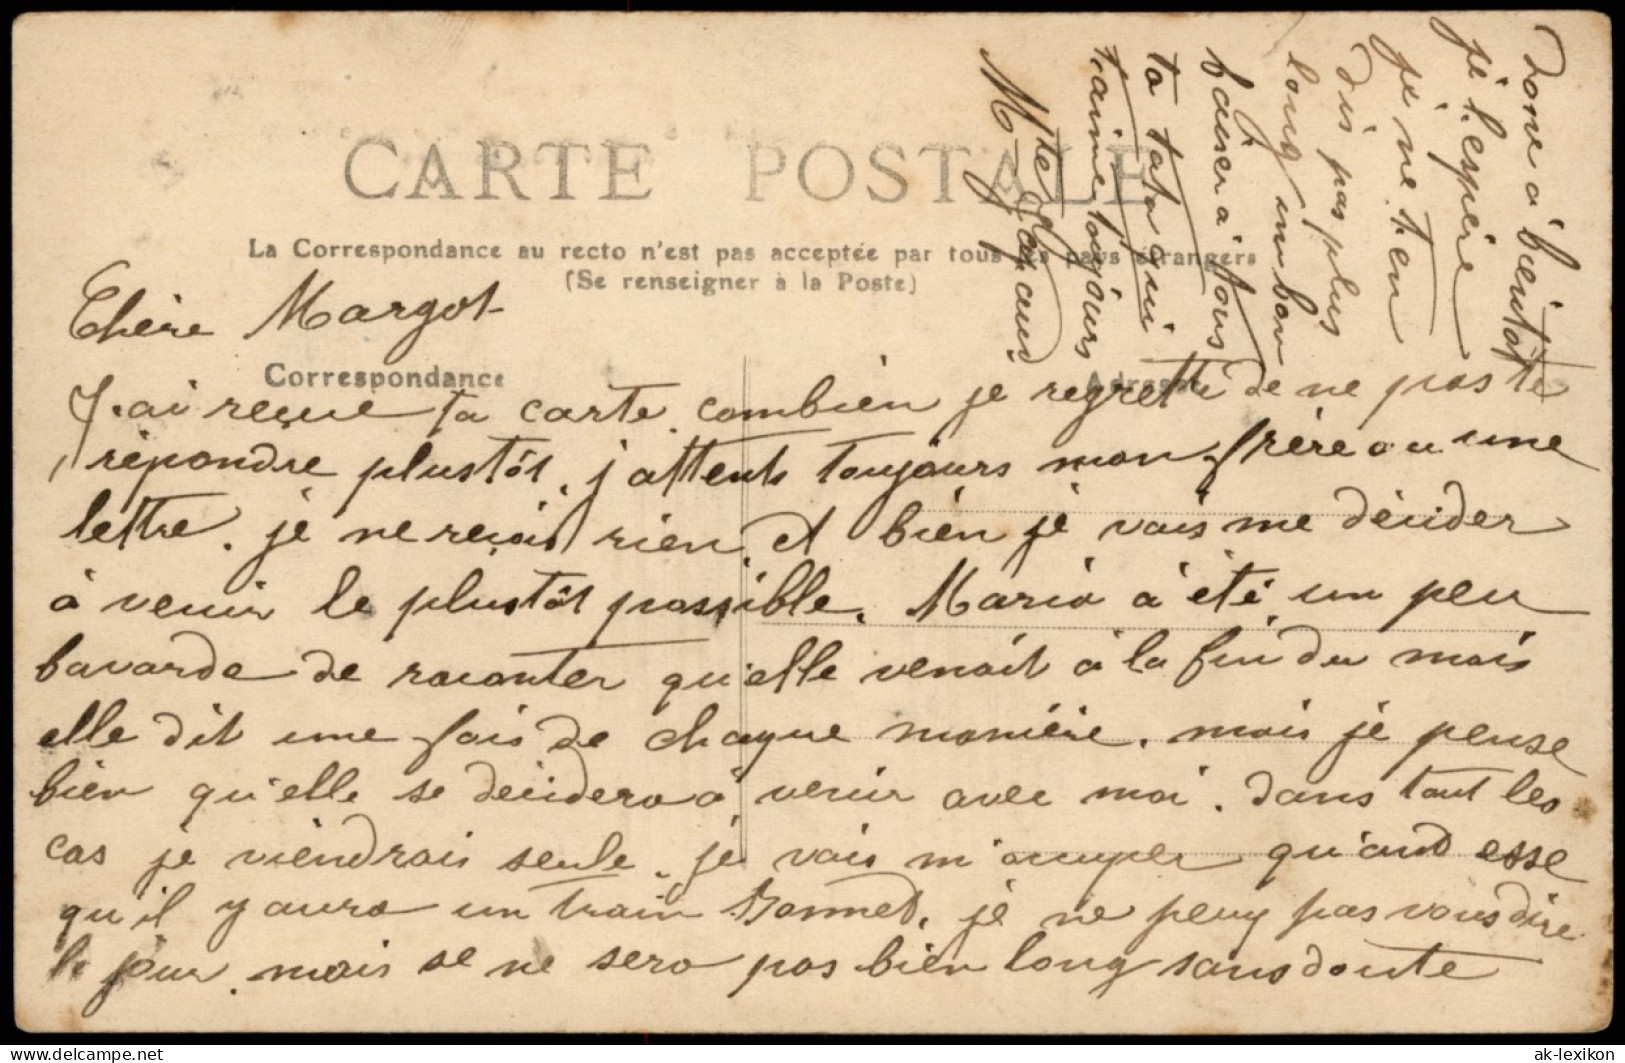 CARTE POSTALE
La Correspondance au recto n'est pas acceptée par tous les pays étrangers
(Se renseigner à la Poste)
Chère Margot
Correspondance
Adresse
J'ai reçue ta carte. combien je regrette de ne pas te
répondre plustôt. j'attents toujours mon frère ou une
lettre. je ne reçois rien. et bien je vais me décider
à venir le plustôt possible. Maria à été un peu
bavarde de raconter qu'elle venait à la fin du mois
elle dit une fois de chaque manière. mais je pense
bien qu'elle se décidera à venir avec moi. dans tout les
cas je viendrais seule. je vais m'occuper quand esse
qu'il y aura un train Bonnet. je ne peux pas vous dire
le jour. mais se ne sera pas bien long sans doute
Donc à bientôt
je l'espère
je ne t'en
dis pas plus
long un bon
baiser à tous
ta tata qui
t'aime toujours
Mte
ak-lexikon
https://www.ak-lexikon.de